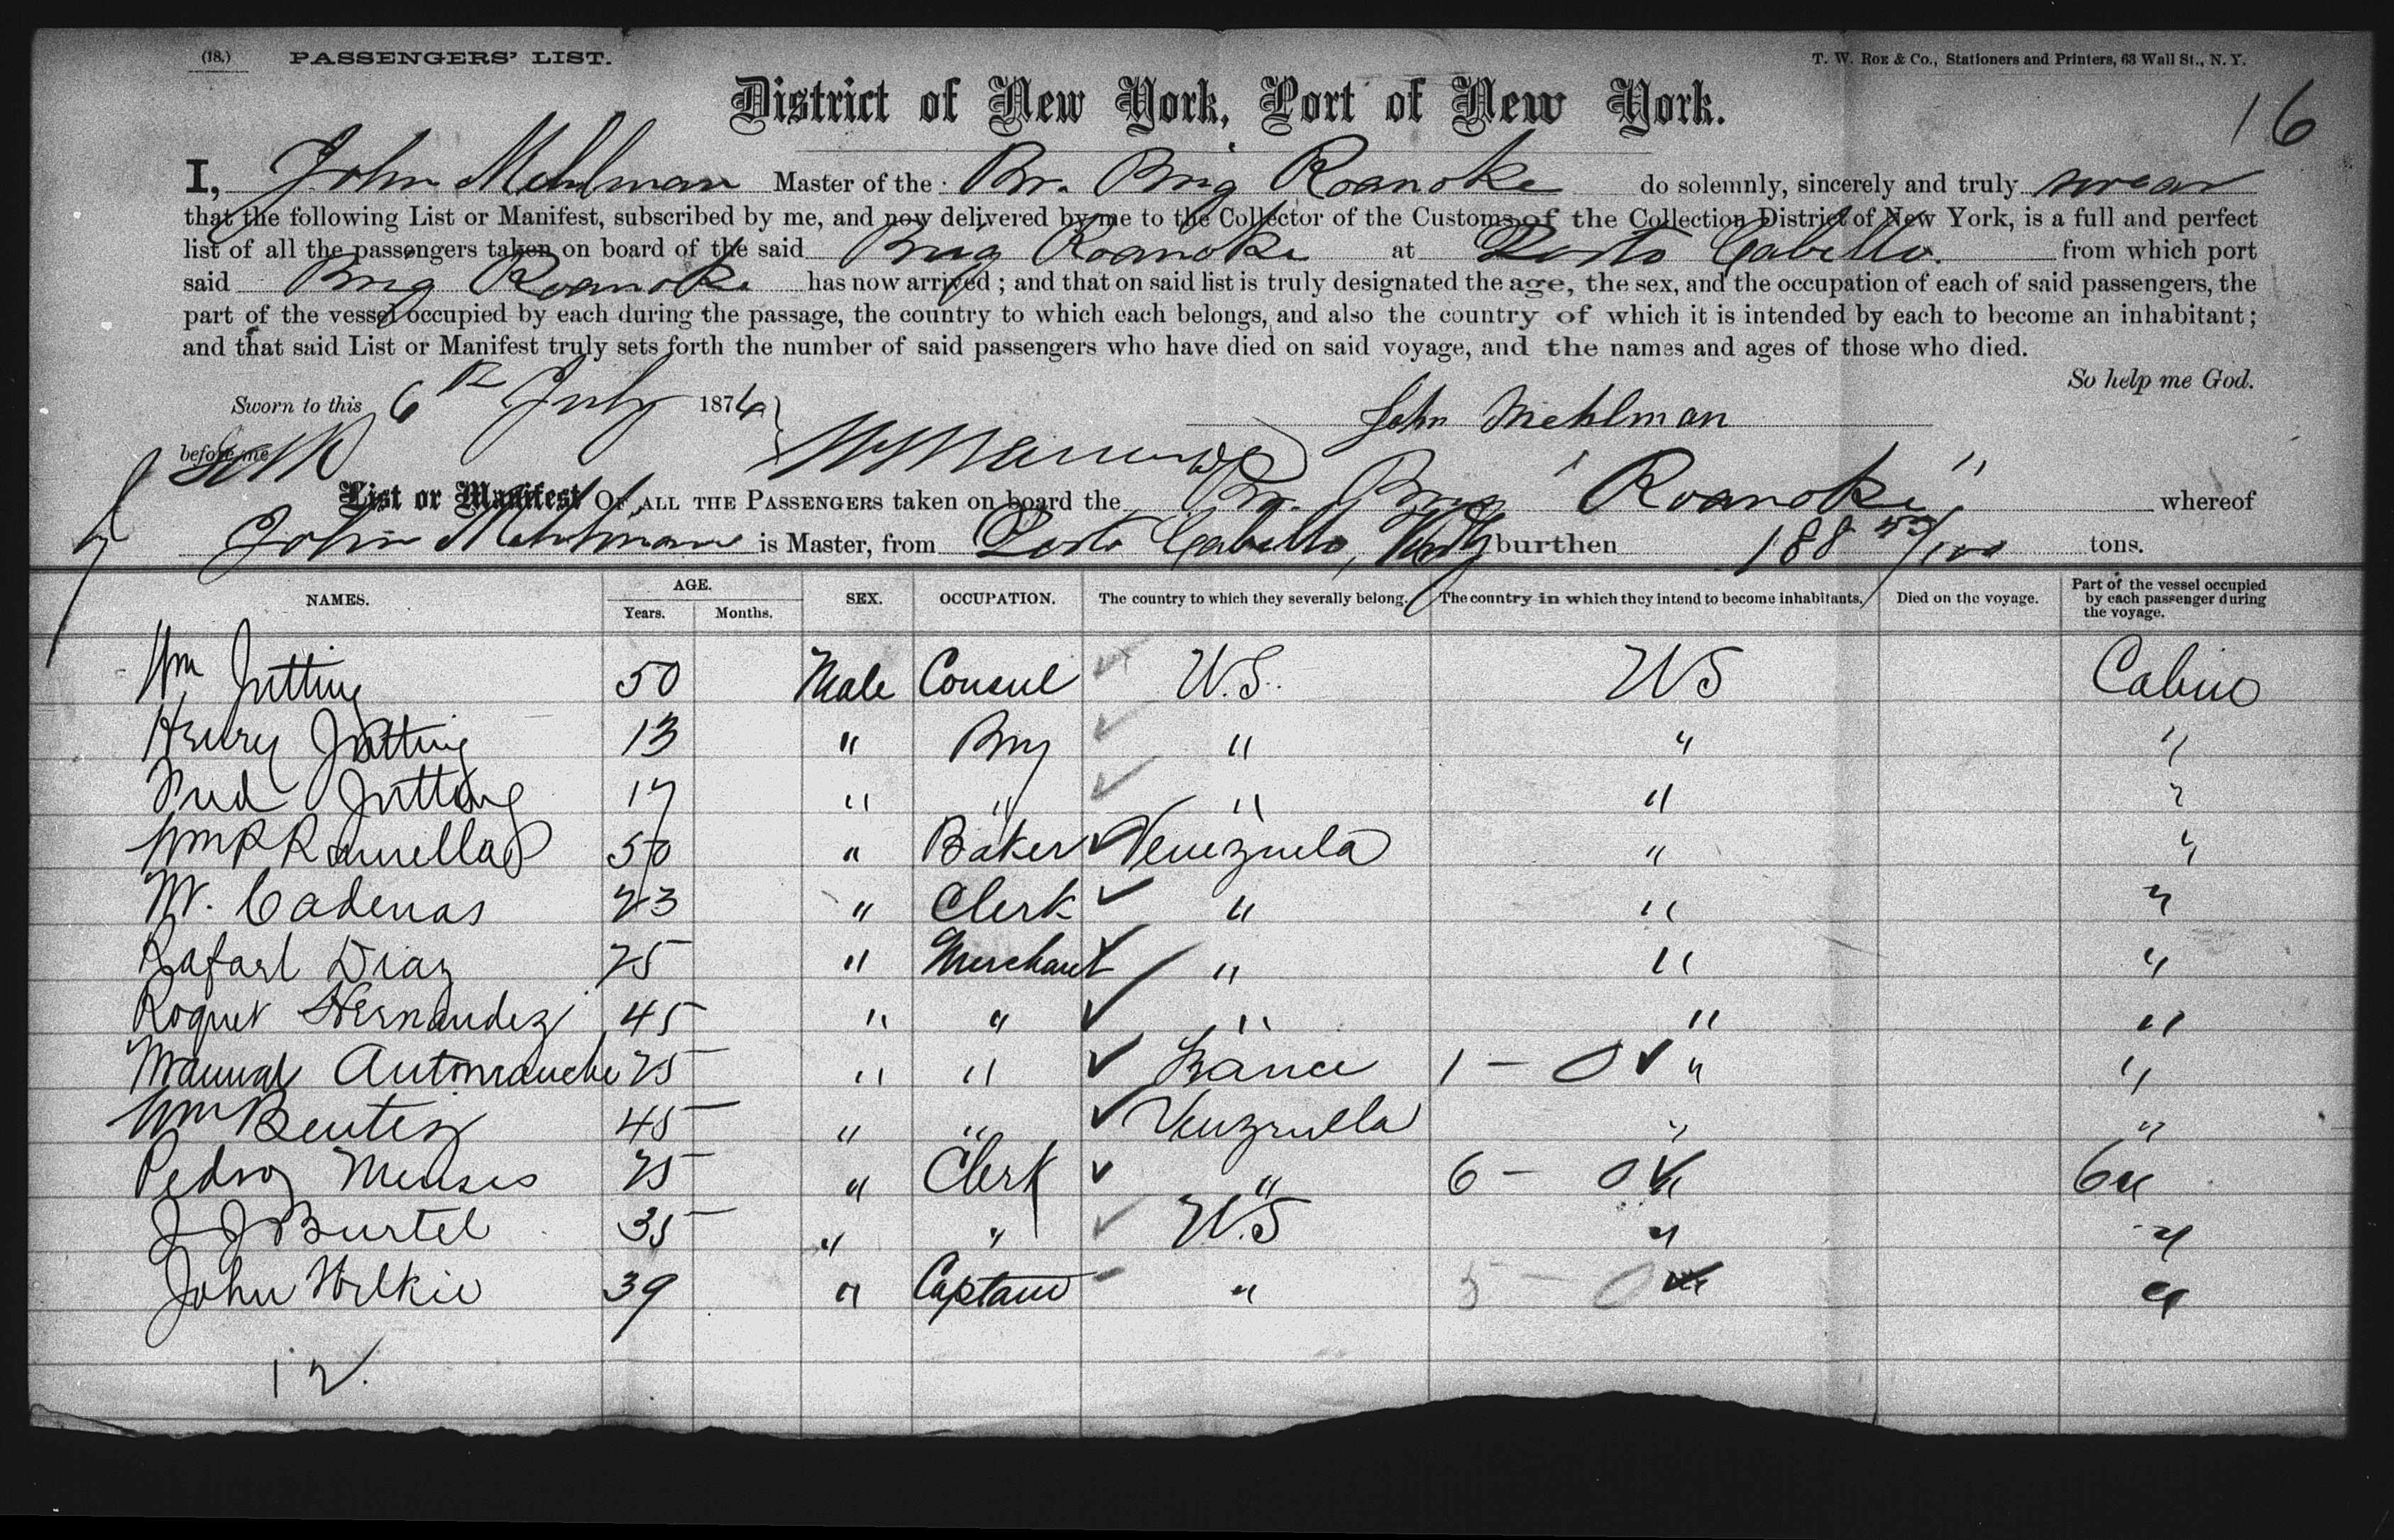 (18.) PASSENGERS' LIST. T. W. ROE & Co., Stationers and Printers, 63 Wall St., N. Y.
District of New York, Port of New York.
16
I, John Mehlman Master of the Br. Brig Roanoke do solemnly, sincerely and truly swear
that the following List or Manifest, subscribed by me, and now delivered by me to the Collector of the Customs of the Collection District of New York, is a full and perfect
list of all the passengers taken on board of the said Brig Roanoke at Porto Cabello. from which port
said Brig Roanoke has now arrived ; and that on said list is truly designated the age, the sex, and the occupation of each of said passengers, the
part of the vessel occupied by each during the passage, the country to which each belongs, and also the country of which it is intended by each to become an inhabitant ;
and that said List or Manifest truly sets forth the number of said passengers who have died on said voyage, and the names and ages of those who died.
So help me God.
Sworn to this 6th July 1876
John Mehlman
before me
List or Manifest OF ALL THE PASSENGERS taken on board the Br. Brig "Roanoke" whereof
John Mehlman is Master, from Porto Cabello, burthen 188 tons.
NAMES. AGE. Years. Months. SEX. OCCUPATION. The country to which they severally belong. The country in which they intend to become inhabitants. Died on the voyage. Part of the vessel occupied by each passenger during the voyage.
Wm Jutting 50 Male Consul U.S. US Cabin
Henry Jutting 13 " Boy " " "
Fred Jutting 17 " " " " "
Wm R 50 " Baker Venezuela " "
M. Cadenas 23 " Clerk " " "
Rafael Diaz 25 " Merchant " " "
Roque Hernandez 45 " " " " "
Manual 25 " " France 1 - 0 " "
Wm Benties 45 " " Venzuella " "
Pedro Menses 25 " Clerk " 6 - 0 " "
J J Burtel 35 " " U.S " "
John Wilkie 39 " Captain " 5 - 0 " "
12